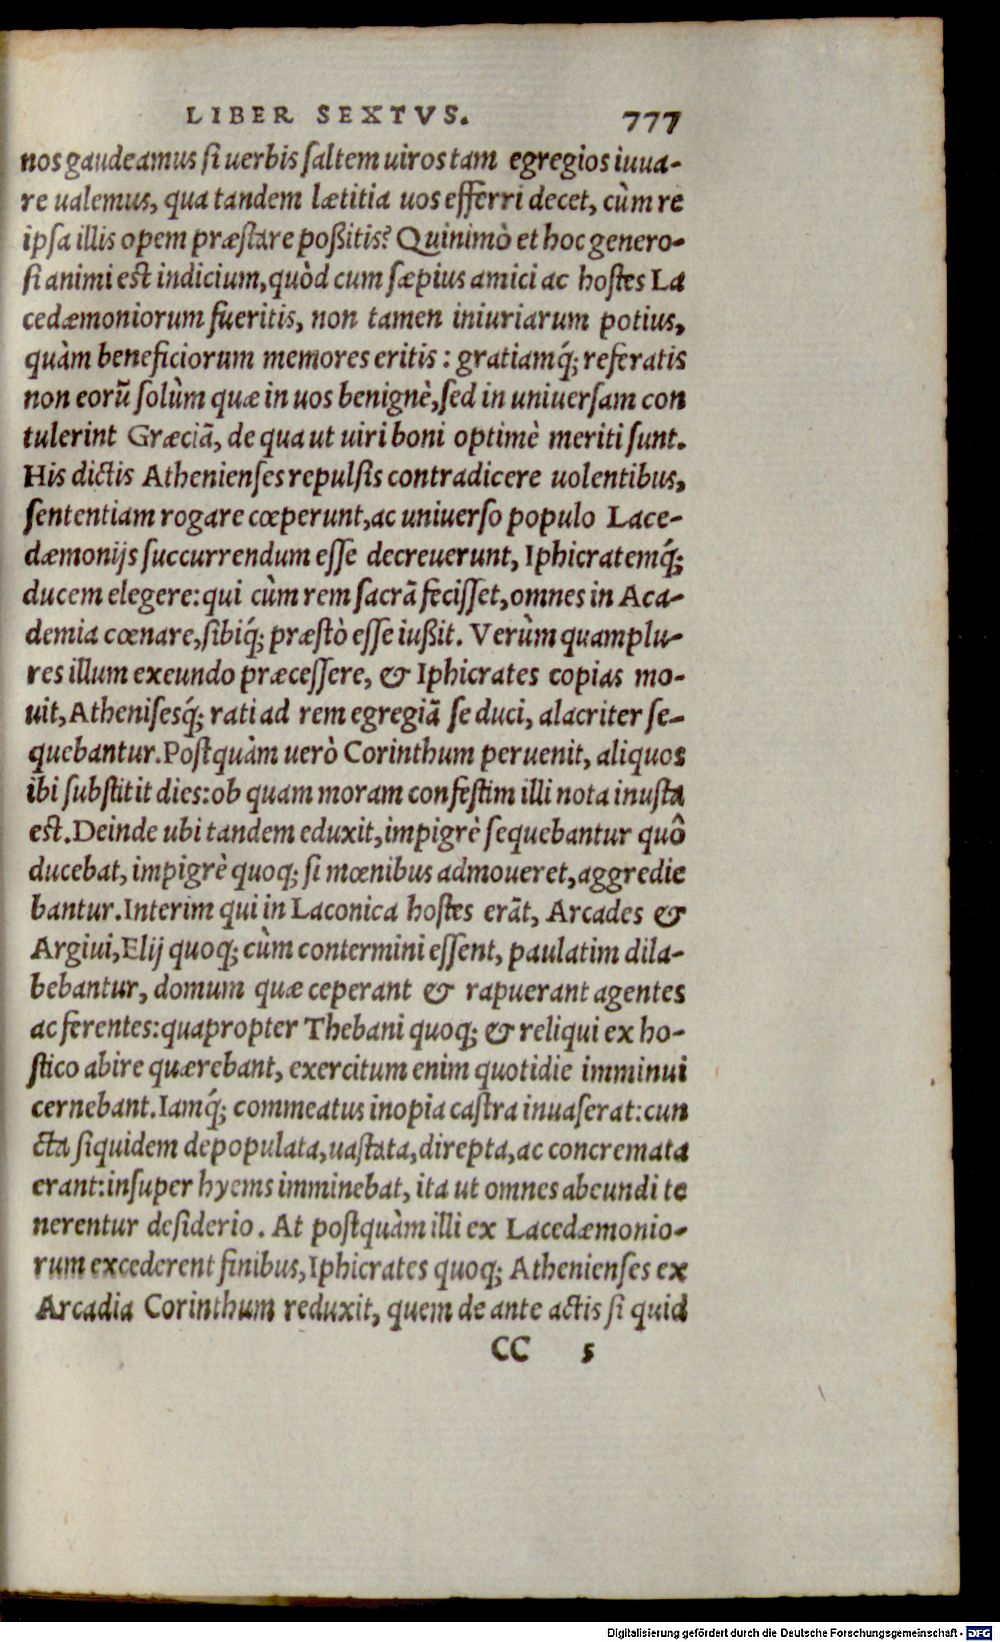 LIBER SEXTVS. 777
nos gaudeamus si uerbis saltem uiros tam egregios iuua-
re ualemus, qua tandem lætitia uos efferri decet, cùm re
ipsa illis opem præstare poßitis? Quinimò et hoc genero-
si animi est indicium, quòd cum sæpius amici ac hostes La
cedæmoniorum fueritis, non tamen iniuriarum potius,
quàm beneficiorum memores eritis: gratiamq́; referatis
non eorũ solùm quæ in uos benignè, sed in uniuersam con
tulerint Græciã, de qua ut uiri boni optimè meriti sunt.
His dictis Athenienses repulsis contradicere uolentibus,
sententiam rogare cœperunt, ac uniuerso populo Lace-
dæmonijs succurrendum esse decreuerunt, Iphicratemq́;
ducem elegere: qui cùm rem sacrã fecisset, omnes in Aca-
demia cœnare, sibiq́; præstò esse iußit. Verùm quamplu-
res illum exeundo præcessere, & Iphicrates copias mo-
uit, Athenisesq́; rati ad rem egregiã se duci, alacriter se-
quebantur. Postquàm uerò Corinthum peruenit, aliquos
ibi substitit dies: ob quam moram confestim illi nota inusta
est. Deinde ubi tandem eduxit, impigrè sequebantur quô
ducebat, impigrè quoq; si mœnibus admoueret, aggredie
bantur. Interim qui in Laconica hostes erãt, Arcades &
Argiui, Elij quoq; cùm contermini essent, paulatim dila-
bebantur, domum quæ ceperant & rapuerant agentes
ac ferentes: quapropter Thebani quoq; & reliqui ex ho-
stico abire quærebant, exercitum enim quotidie imminui
cernebant. Iamq́; commeatus inopia castra inuaserat: cun
cta siquidem depopulata, uastata, direpta, ac concremata
erant: insuper hyems imminebat, ita ut omnes abeundi te
nerentur desiderio. At postquàm illi ex Lacedæmonio-
rum excederent finibus, Iphicrates quoq; Athenienses ex
Arcadia Corinthum reduxit, quem de ante actis si quid
CC 5
Digitalisierung gefördert durch die Deutsche Forschungsgemeinschaft - DFG